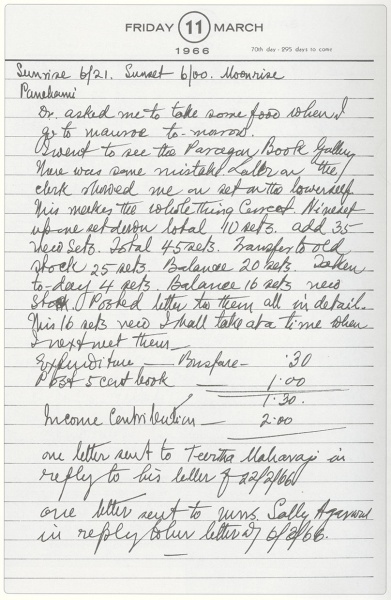 FRIDAY 11 MARCH
1966 70th day - 295 days to come
Sunrise 6/21. Sunset 6/00. Moonrise
Panchami
Dr. asked me to take some food when I
go to to-morrow.
I went to see the Paragon Book Gallery
There was some mistake. Later on the
clerk showed me on set on the lower self
This makes the whole thing Correct. Nine set
up one set down total 10 sets. add 35
New Sets. Total 45 sets. Transfer to old
stock 25 sets. Balance 20 sets. Taken
to-day 4 sets. Balance 16 sets new
Stock. I Posted letter to them all in detail.
This 16 sets new I shall take at a time when
I next met them —
Expenditure — Busfare — .30
Post 5 cent book — 1.00
1.30.
Income Contribution — 2.00
one letter sent to Teertha Maharaj in
reply to his letter of 22/2/66
one letter sent to Mrs. Sally Agarwal
in reply to her letter of 6/3/66.